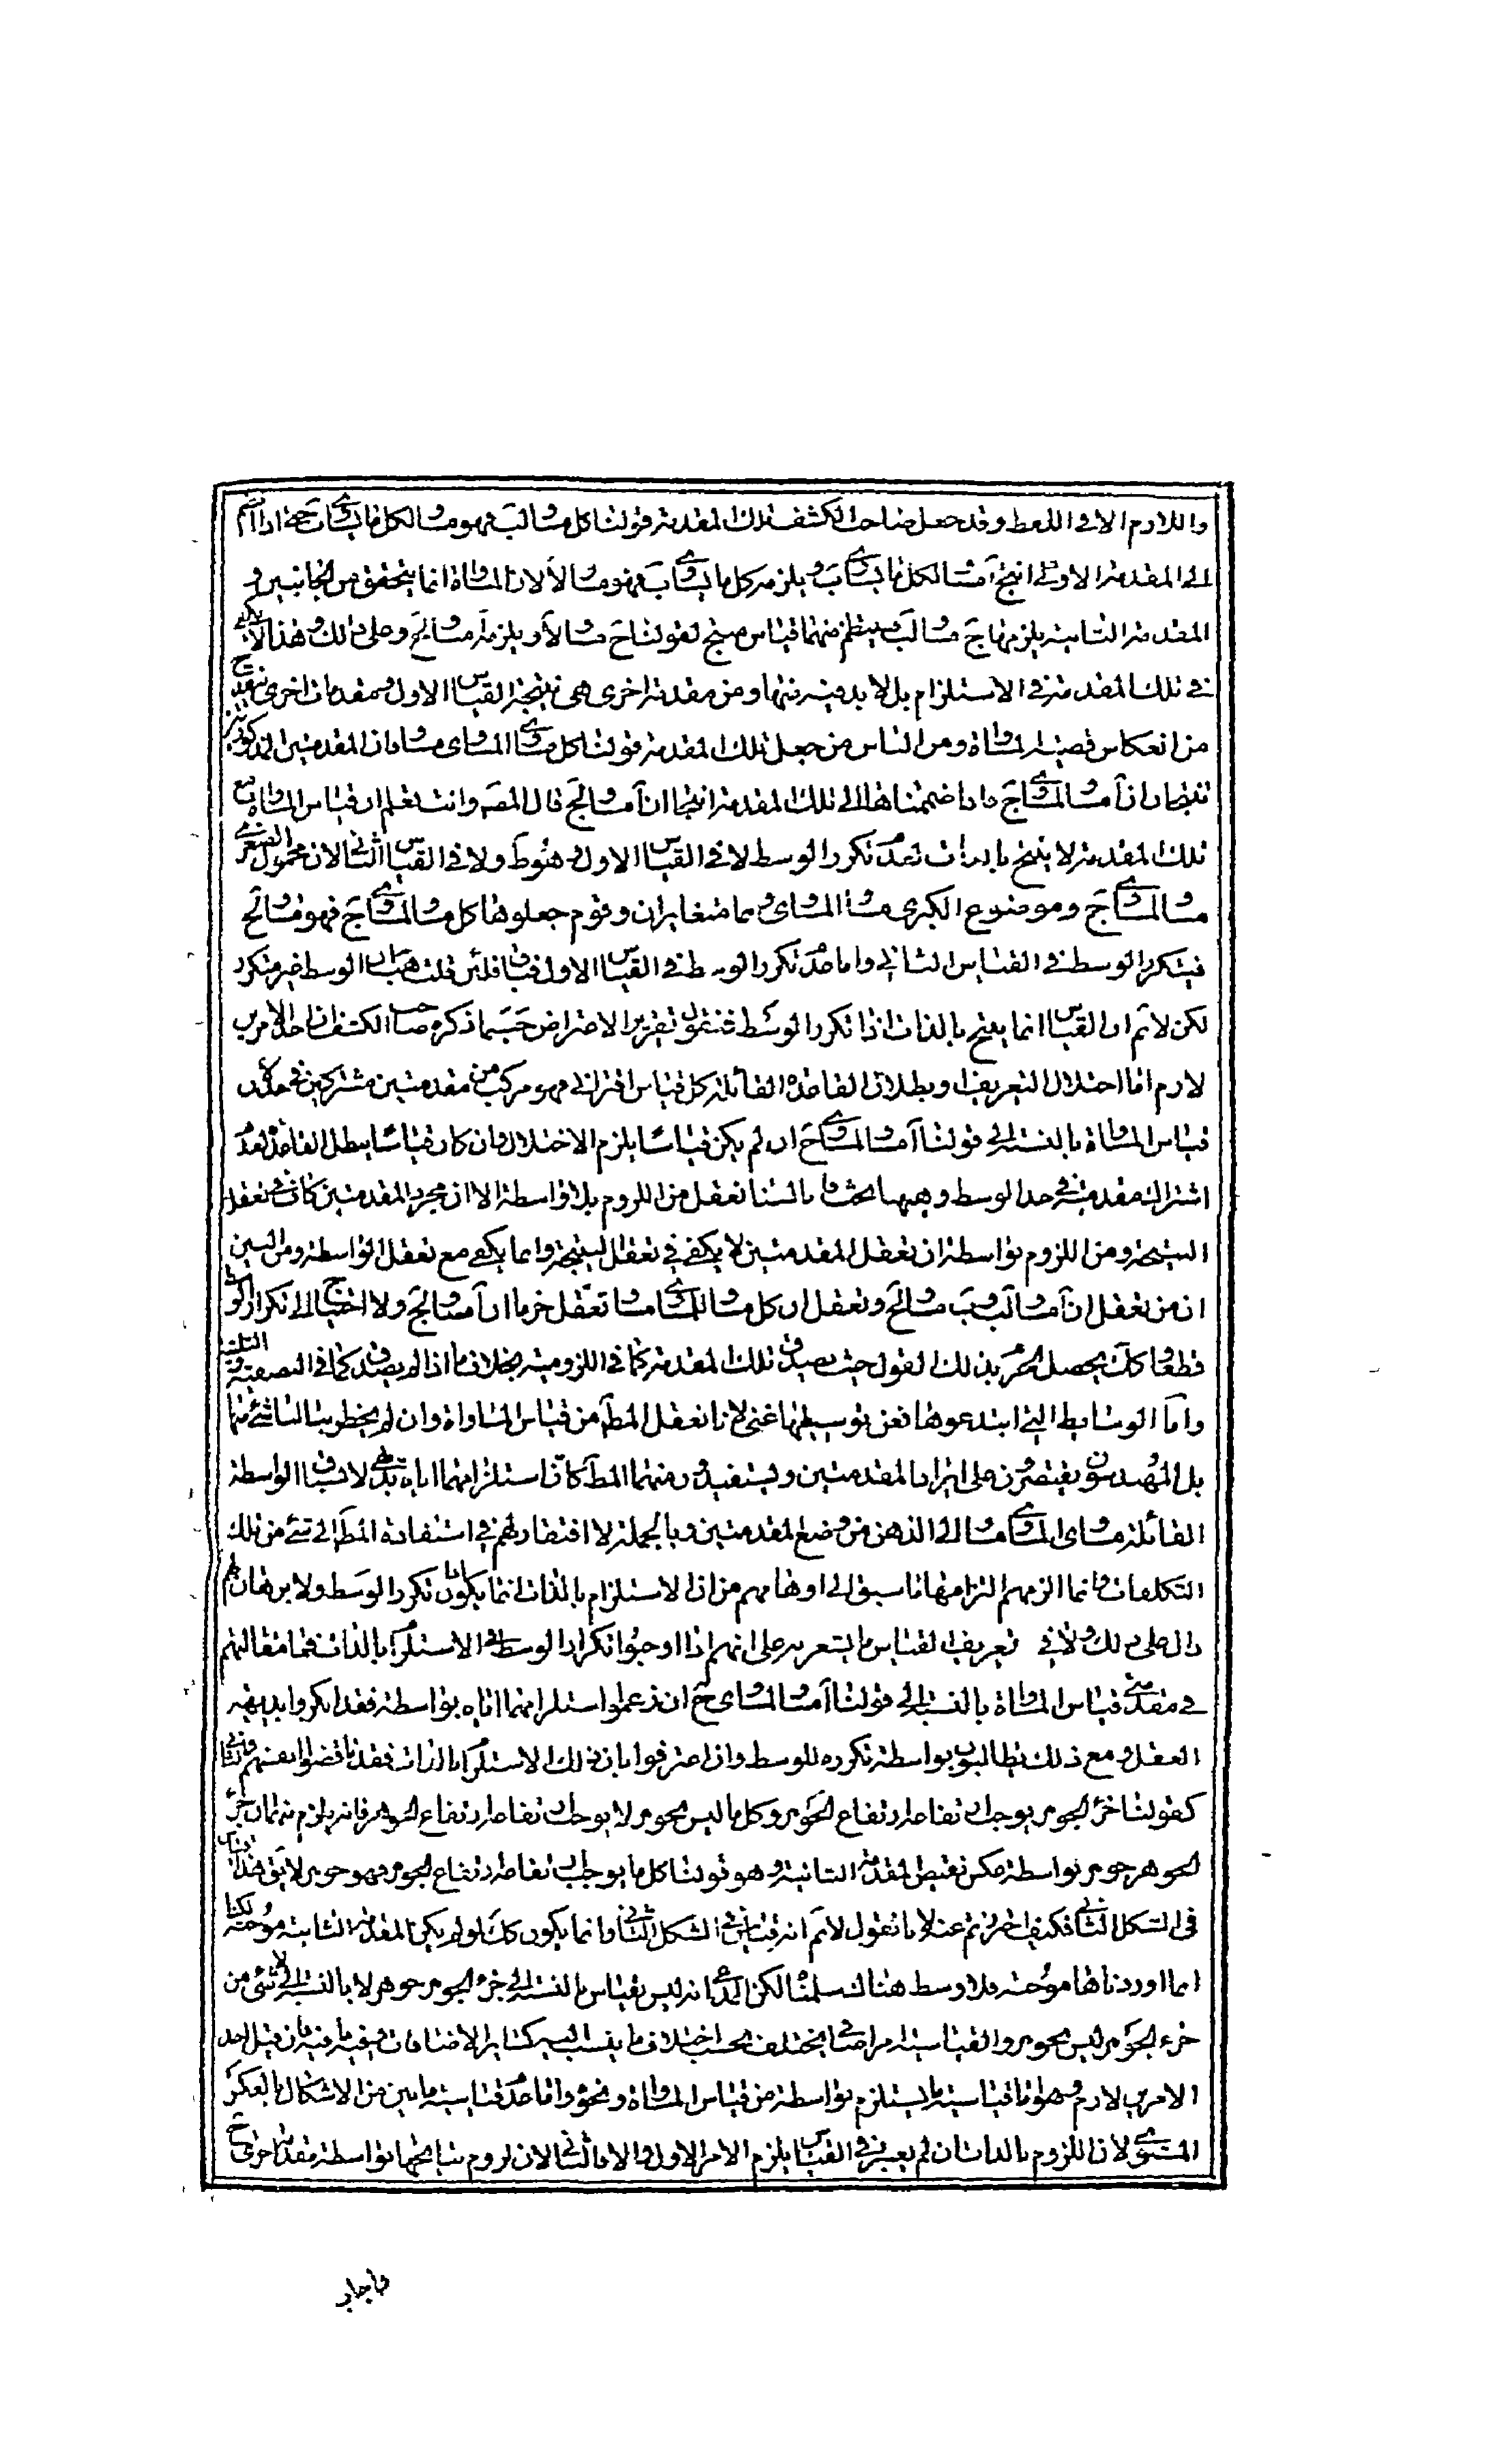 واللازم الا في اللفظ وقد جعل صاحب الكشف تلك المقدمة قولنا كل مساو لب فهو مساو لكل ما يساويه ب حتى اذا انضم
الى المقدمة الاولى انتج آ مساو لكل ما يساويه ب ويلزمه كل ما يساويه ب فهو مساو لآ لان المساواة انما يتحقق من الجانبين و
المقدمة الثانية يلزمها ج مساو لب فينتظم منهما قياس منتج لقولنا ج مساو لآ ويلزمه آ مساو لج وعلى ذلك فهذا لا يكفي
في تلك المقدمة في الاستلزام بل لا بد فيه منها ومن مقدمة اخرى هي نتيجة القياس الاول ومقدمات اخرى
من انعكاس قضية المساواة ومن الناس من جعل تلك المقدمة قولنا كل مساو المساوي مساو فان المقدمتين المذكورتين
تنتجان ان آ مساو لمساوي ج فاذا ضممناها الى تلك المقدمة انتجا ان آ مساو لج قال المصـ وانت تعلم ان قياس المساواة مع
تلك المقدمة لا ينتج بالذات لعدم تكرر الوسط لا في القياس الاول وهو ظ ولا في القياس الثاني لان محمول الصغرى
مساو لمساوي ج وموضوع الكبرى مساو المساوي وهما متغايران وقوم جعلوها كل مساو لمساوي ج فهو مساو لج
فيتكرر الوسط في القياس الثاني واما عدم تكرر الوسط في القياس الاول فباق فلئن قلت هب ان الوسط غير متكرر
لكن لا نم ان القياس انما ينتج بالذات اذا تكرر الوسط فنقول تقرير الاعتراض حسبما ذكره صاحب الكشف ان احد الامرين
لازم اما اختلال التعريف او بطلان القاعدة القائلة كل قياس اقتراني فهو مركب من مقدمتين مشتركتين في حد لان
قياس المساواة بالنسبة الى قولنا آ مساو لمساوي ج ان لم يكن قياسا يلزم الاختلال وان كان قياسا يبطل القاعدة لعدم
اشتراك مقدمتيه في حد الوسط وههنا بحث فانا لسنا نعقل من اللزوم بلا واسطة الا ان مجرد المقدمتين كاف في تعقل
النتيجة ومن اللزوم بواسطة ان تعقل المقدمتين لا يكفي في تعقل النتيجة وانما يكفي مع تعقل الواسطة ومن البين
ان من تعقل ان آ مساو لب وب مساو لج وتعقل ان كل مساو لمساوي مساو تعقل جزما ان آ مساو لج ولا احتياج الى تكرار الوسط
قطعا وكذلك يحصل الجزم بذلك القول حيث يصدق تلك المقدمة كما في اللزومية بخلاف ما اذا لم يصدق كما في النصفية والثلثية
واما الوسايط التي ابتدعوها فعن توسيطها غنى لانا نعقل المط من قياس المساواة وان لم يخطر ببالنا شيء منها
بل المهندسون يقتصرون على ايراد المقدمتين ويستفيدون منهما المط كان استلزامهما اياه بديهي لانسياق الواسطة
القائلة مساوي المساوي مساو الى الذهن من وضع المقدمتين وبالجملة لا افتقار لهم في استفادة المط الى شيء من تلك
التكلفات وانما الزمهم التزامها ما سبق الى اوهامهم من ان الاستلزام بالذات انما يكون بتكرر الوسط ولا برهان لهم
دال على ذلك ولا في تعريف القياس ما يشعر به على انهم اذا اوجبوا تكرار الوسط في الاستلزام بالذات فما مقالتهم
في مقدمتي قياس المساواة بالنسبة الى قولنا آ مساو لمساوي ج ان زعموا استلزامهما اياه بواسطة فقد انكروا بديهة
العقل ومع ذلك يطالبون بواسطة تكرره للوسط وان اعترفوا بان ذلك الاستلزام بالذات فقد ناقضوا انفسهم
كقولنا جزء الجوهر يوجب ارتفاعه ارتفاع الجوهر وكل ما ليس بجوهر لا يوجب ارتفاعه ارتفاع الجوهر فانه يلزم منه ان جزء
الجوهر جوهر بواسطة عكس نقيض المقدمة الثانية وهو قولنا كل ما يوجب ارتفاعه ارتفاع الجوهر فهو جوهر لا يق هذا قياس
في الشكل الثاني فكيف احترزتم عنه لانا نقول لا نم انه قياس في الشكل الثاني وانما يكون كذلك لو لم يكن المقدمة الثانية موجبة لكنا
انما اوردناها موجبة فلا وسط هناك سلمناه لكن المدعى انه ليس بقياس بالنسبة الى جزء الجوهر جوهر لا بالنسبة الى لا شيء من
جزء الجوهر ليس بجوهر والقياسية امر اضافي يختلف بحسب اختلاف ما ينسب اليه كساير الاضافات وفيه ما فيه فان قيل احد
الامرين لازم وهو اما قياسية ما يستلزم بواسطة من قياس المساواة ونحوه واما عدم قياسية ما يبين من الاشكال بالعكس
المستوي لان اللزوم بالذات ان لم يعتبر في القياس يلزم الامر الاول والا فالثاني لان لزوم نتايجها بواسطة مقدمة اخرى
فاجاب